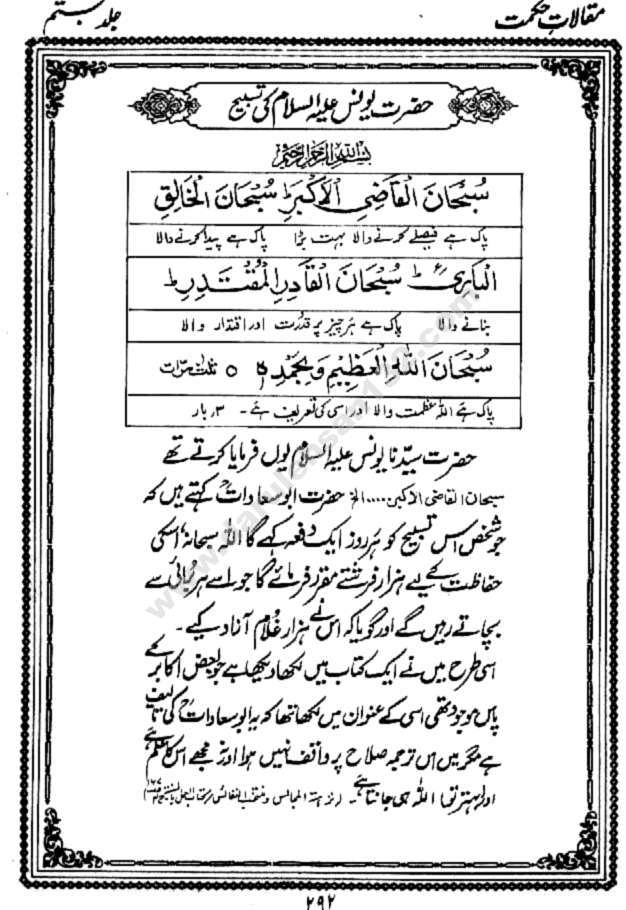 مقالاتِ حکمت
جلد ہشتم
حضرت یونس علیہ السلام کی تسبیح
بسم اللہ الرحمن الرحیم
سُبْحَانَ الْقَاضِي الْاَكْبَرِ ط سُبْحَانَ الْخَالِقِ
پاک ہے فیصلے کرنے والا بہت بڑا پاک ہے پیدا کرنے والا
الْبَارِئِ ط سُبْحَانَ الْقَادِرِ الْمُقْتَدِرِ ط
بنانے والا پاک ہے ہر چیز پر قدرت اور اقتدار والا
سُبْحَانَ اللّٰهِ الْعَظِيْمِ وَبِحَمْدِهٖ ○ ثلث مرّات
پاک ہے اللہ عظمت والا اور اسی کی تعریف ہے۔ ۳ بار
حضرت سیّدنا یونس علیہ السلام یوں فرمایا کرتے تھے
سبحان القاضی الاکبر.... الخ حضرت ابو سعادات کہتے ہیں کہ
جو شخص اس تسبیح کو ہر روز ایک دفعہ کہے گا اللہ سبحانہ' اسکی
حفاظت کے لیے ہزار فرشتے مقرر فرمائے گا جو اسے ہر بُرائی سے
بچاتے رہیں گے اور گویا کہ اس نے ہزار غُلام آزاد کیے۔
اسی طرح میں نے ایک کتاب میں لکھا دیکھا ہے جو بعض اکابر کے
پاس موجود تھی اسی کے عنوان میں لکھا تھا کہ یہ ابو سعادات کی تالیف
ہے مگر میں اس ترجمہ صلاح پر واقف نہیں ہوا اور نہ مجھے اس کا علم ہے
اور بہتر تو اللہ ہی جانتا ہے۔ (نزہۃ المجالس و منتخب النفائس
۲۹۲
www.darulehsan150.com